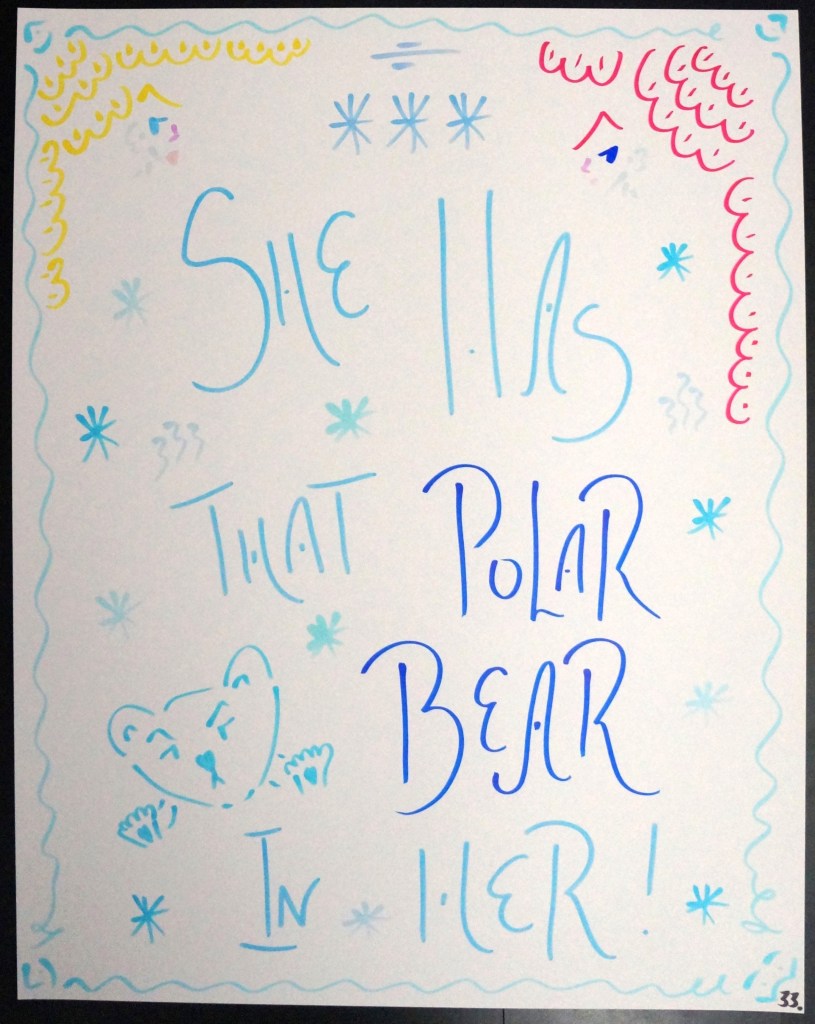 SHE HAS
THAT POLAR
BEAR
IN HER!
33.